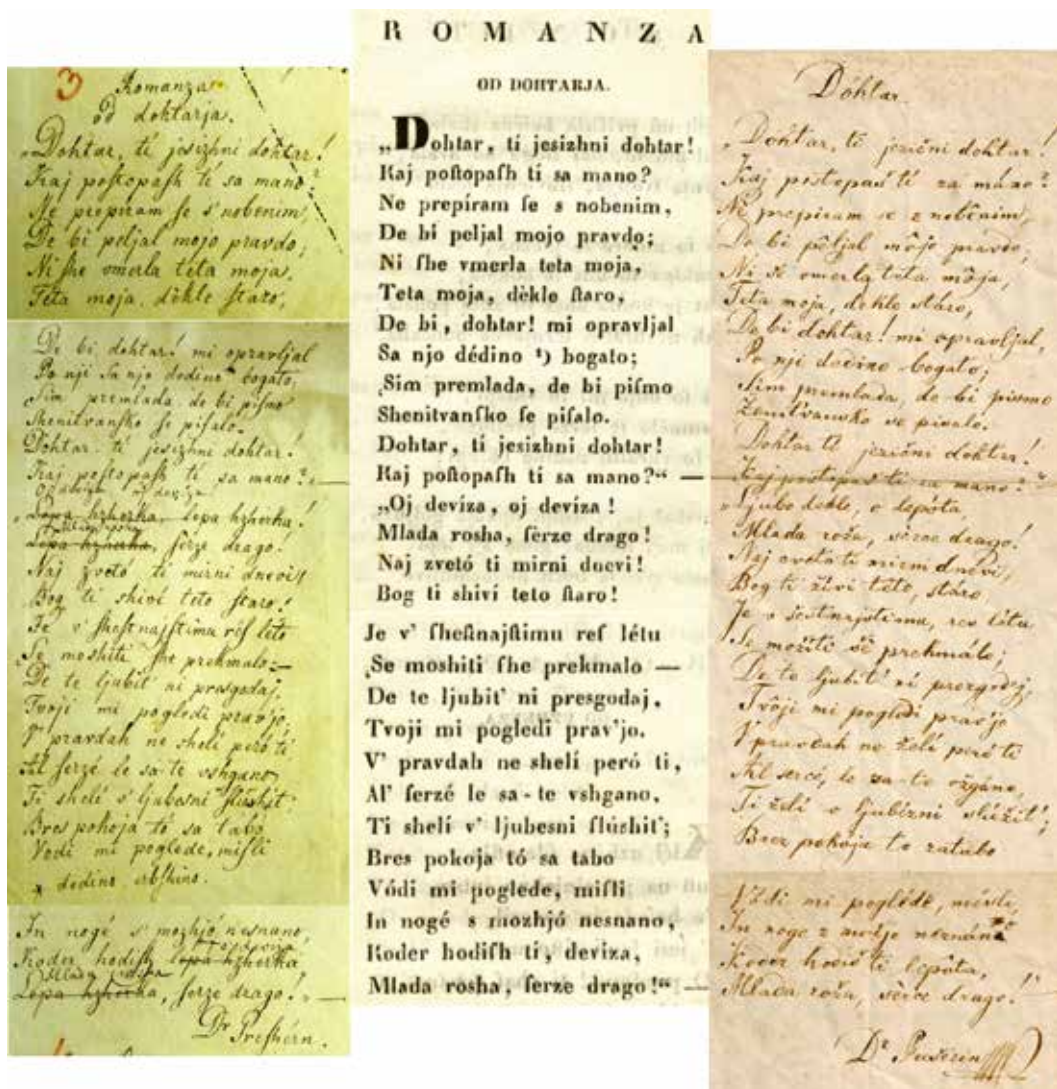 3
Romanza
od dohtarja.
„Dohtar, tí jesizhni dohtar!
Kaj poſtopaſh tí sa mano?
Ne prepiram ſe s' nobenim,
De bi peljal mojo pravdo;
Ni ſhe vmerla teta moja,
Teta moja, dèkle ſtaro,
De bi dohtar! mi opravljal
Po nji Sa njo dedino * bogato;
Sim premlada, de bi piſmo
Shenitvanſko ſe piſalo.
Dohtar, tí jesizhni dohtar!
Kaj poſtopaſh tí sa mano? —
Oj deviza, oj deviza!
„Lepa hzherka, lepa hzherka!
Mlada rosha
Lepa hzherka, ſerze drago!
Naj zvetó ti mirni dnevi!
Bog ti shiví teto ſtaro!
Je v' ſheſtnajſtimu reſ léto
Se moshiti ſhe prekmalo —
De te ljubit' ni presgodaj,
Tvoji mi pogledi prav'jo.
V' pravdah ne shelí peró ti
Al ſerzé le sa-te vshgano,
Ti shelí v' ljubesni ſlúshit'
Bres pokoja tó sa tabo
Vodi mi poglede, miſli
* dedino
In nogé s' mozhjó nesnano,
Koder hodiſh lepa hzherka
Mlada rosha
Lepa hzherka, ſerze drago! —
Dr Preſhérn.
ROMANZA
OD DOHTARJA.
„Dohtar, tí jesizhni dohtar!
Kaj poſtopaſh ti sa mano?
Ne prepíram ſe s nobenim,
De bi peljal mojo pravdo;
Ni ſhe vmerla teta moja,
Teta moja, dèkle ſtaro,
De bi, dohtar! mi opravljal
Sa njo dédino ¹) bogato;
Sim premlada, de bi piſmo
Shenitvanſko ſe piſalo.
Dohtar, tí jesizhni dohtar!
Kaj poſtopaſh ti sa mano?“ —
„Oj devíza, oj devíza!
Mlada rosha, ſerze drago!
Naj zvetó ti mirni dnevi!
Bog ti shiví teto ſtaro!
Je v' ſheſtnajſtimu reſ létu
Se moshiti ſhe prekmalo —
De te ljubit' ni presgodaj,
Tvoji mi pogledi prav'jo.
V' pravdah ne shelí peró ti,
Al' ſerzé le sa-te vshgano,
Ti shelí v' ljubesni ſlúshit';
Bres pokoja tó sa tabo
Vódi mi poglede, miſli
In nogé s mozhjó nesnano,
Koder hodiſh ti, devíza,
Mlada rosha, ſerze drago!“ —
Dohtar.
„Dohtar, ti jezični dohtar!
Kaj postopaš ti za mano?
Ne prepiram se z nobenim,
De bi pêljal môjo pravdo;
Ni še vmerla teta môja,
Teta moja, dekle stáro,
De bi dohtar! mi opravljal,
Po nji dedino bogato;
Sim premlada, de bi pismo
Ženitvansko se pisalo.
Dohtar ti jezični dohtar!
Kaj postopaš ti za mano?“
„Ljubo dekle, o lepôta
Mlada roža, sêrce drago!
Naj cveto ti mirni dnêvi,
Bog ti živi teto, stáro,
Je v šestnajstimu, res létu
Se možiti še prekmálo;
De te ljubit' ni prezgodej,
Tvôji mi pogledi prav'jo
V pravdah ne želí peró ti
Al sercé, le za-te vžgáno,
Ti želí v ljubézni slúžit';
Brez pokoja to za tabo
Vodi mi poglêde, misli
In noge z močjo neznáno
Koder hodiš ti lepôta,
Mlada roža, sêrce drago!“
Dr